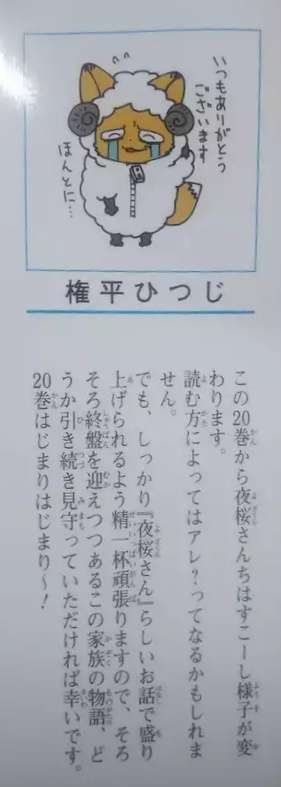 いつもありがとう
ございます
ほんとに…
権平ひつじ
この20巻から夜桜さんちはすこーし様子が変
わります。
読む方によってはアレ?ってなるかもしれま
せん。
でも、しっかり『夜桜さん』らしいお話で盛り
上げられるよう精一杯頑張りますので、そろ
そろ終盤を迎えつつあるこの家族の物語、ど
うか引き続き見守っていただければ幸いです。
20巻はじまりはじまり〜!